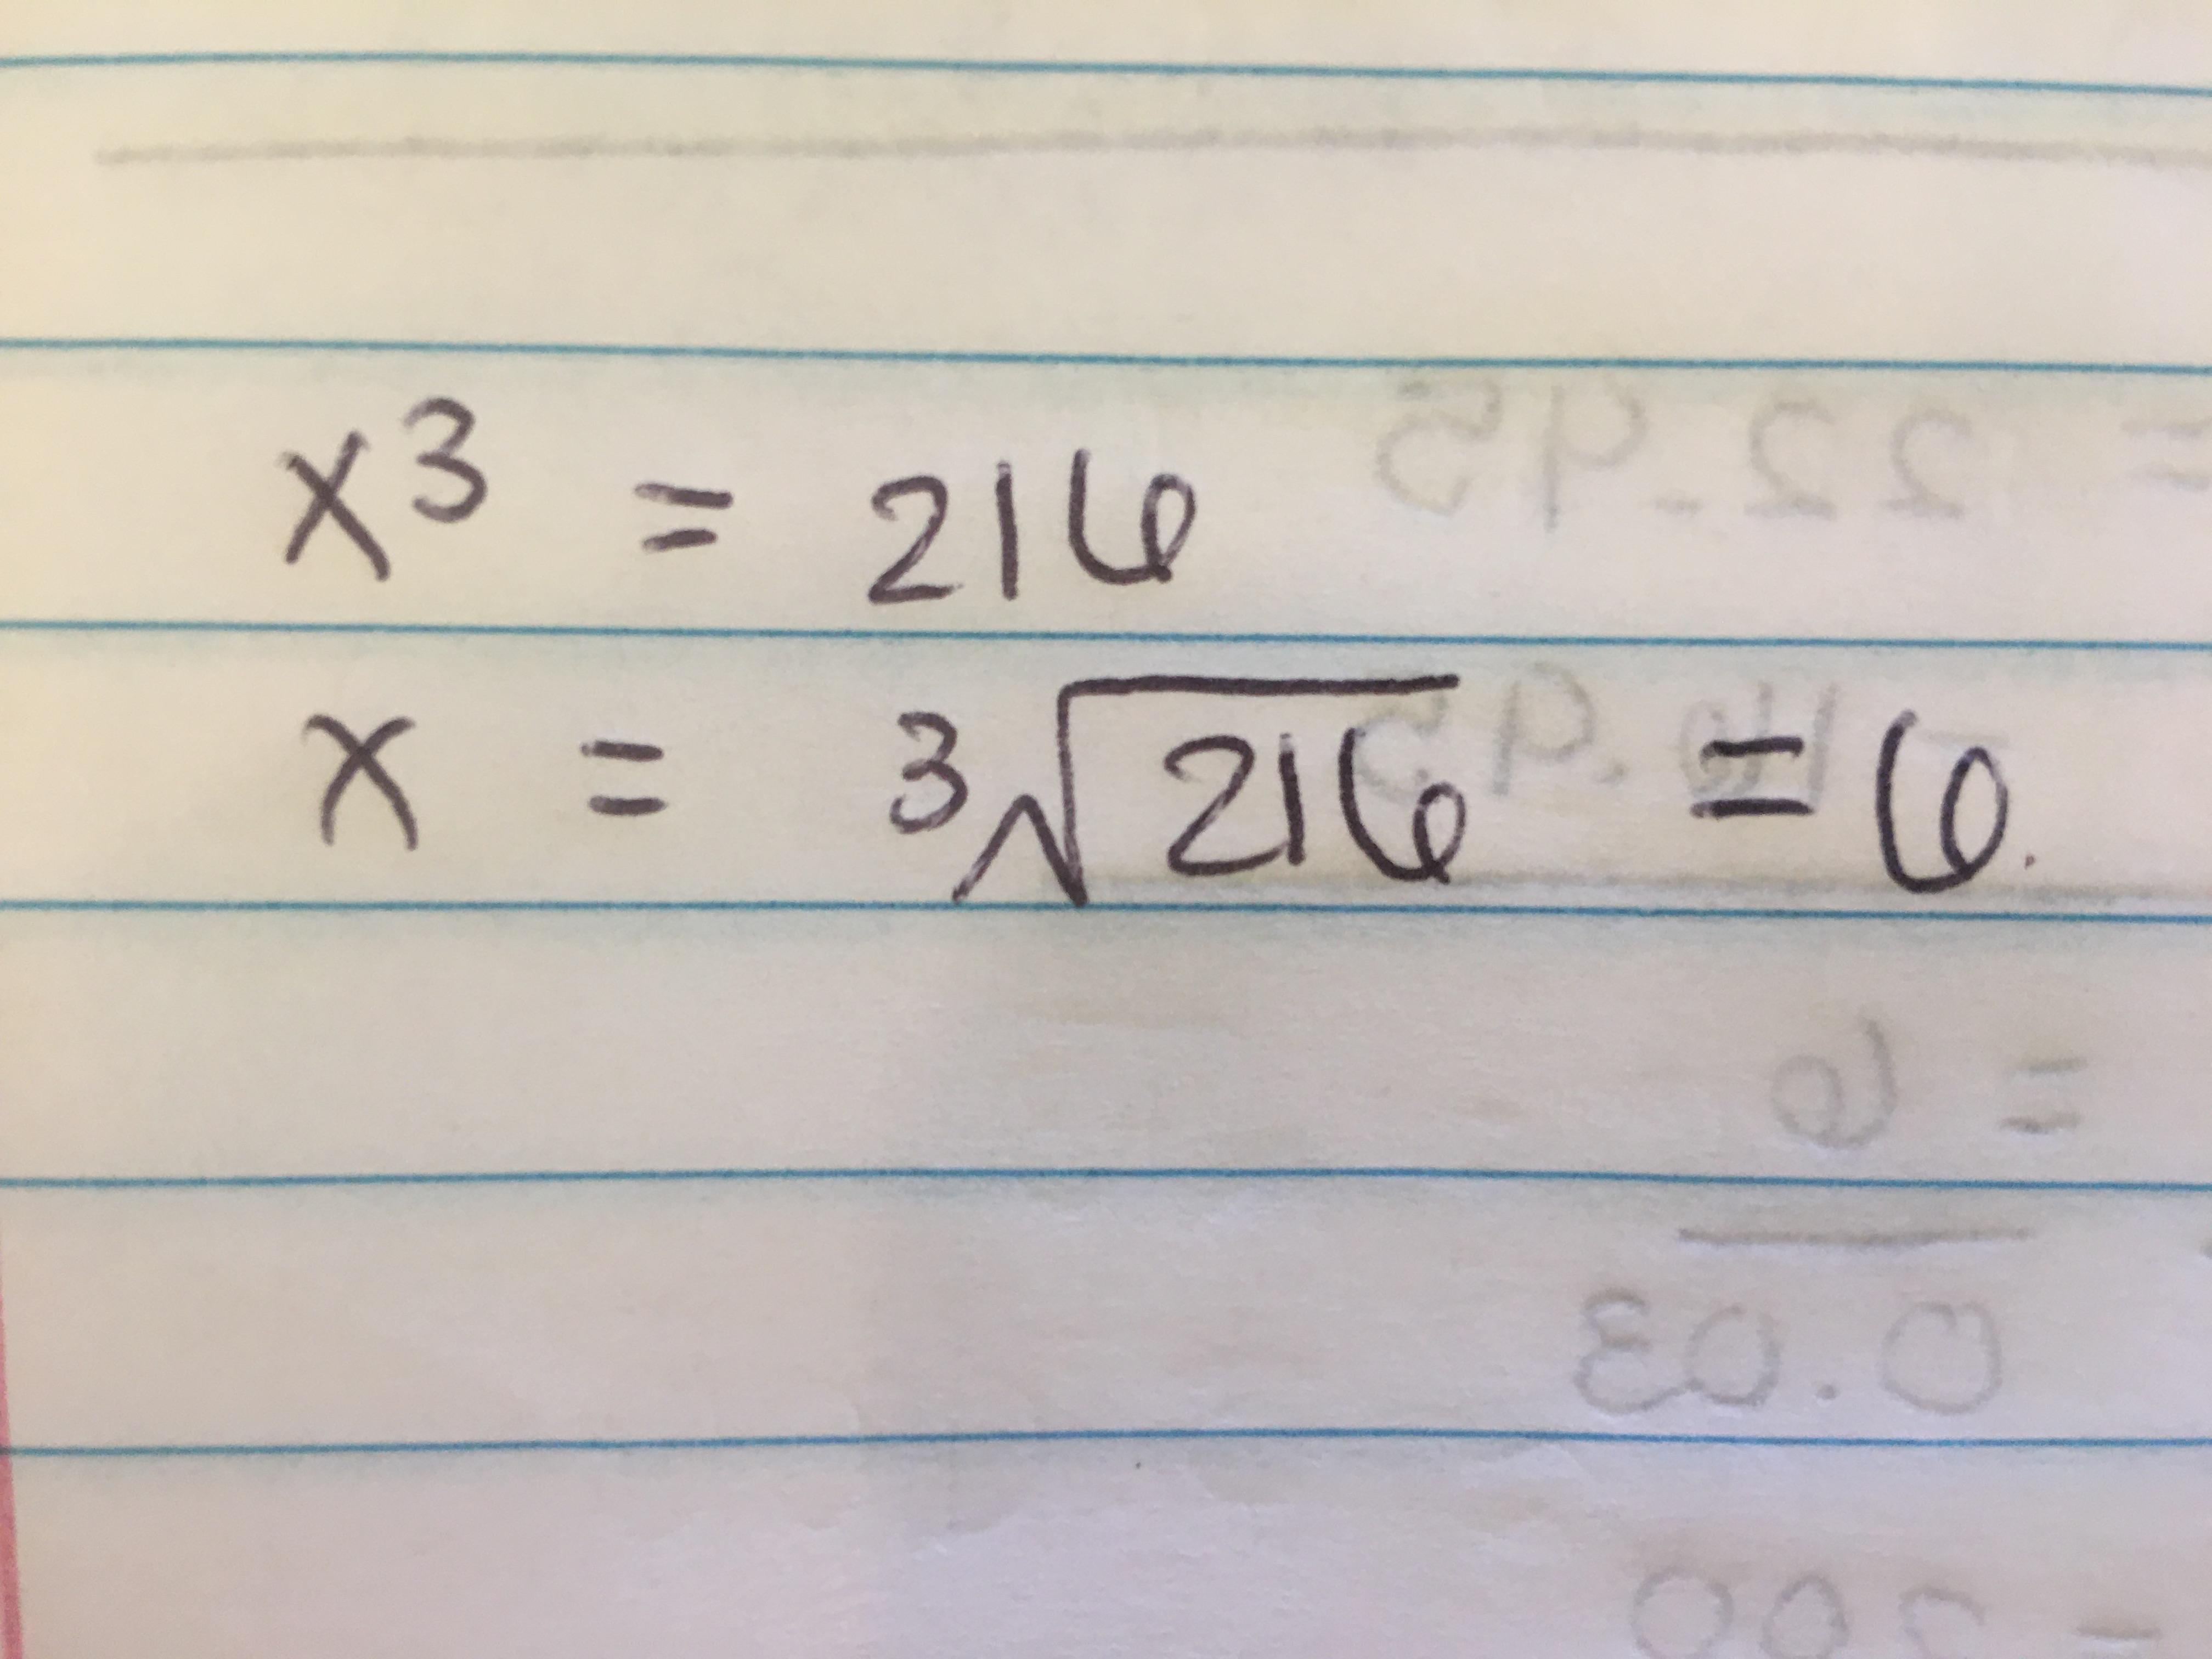 x³ = 216
x = ³√216 = 6.